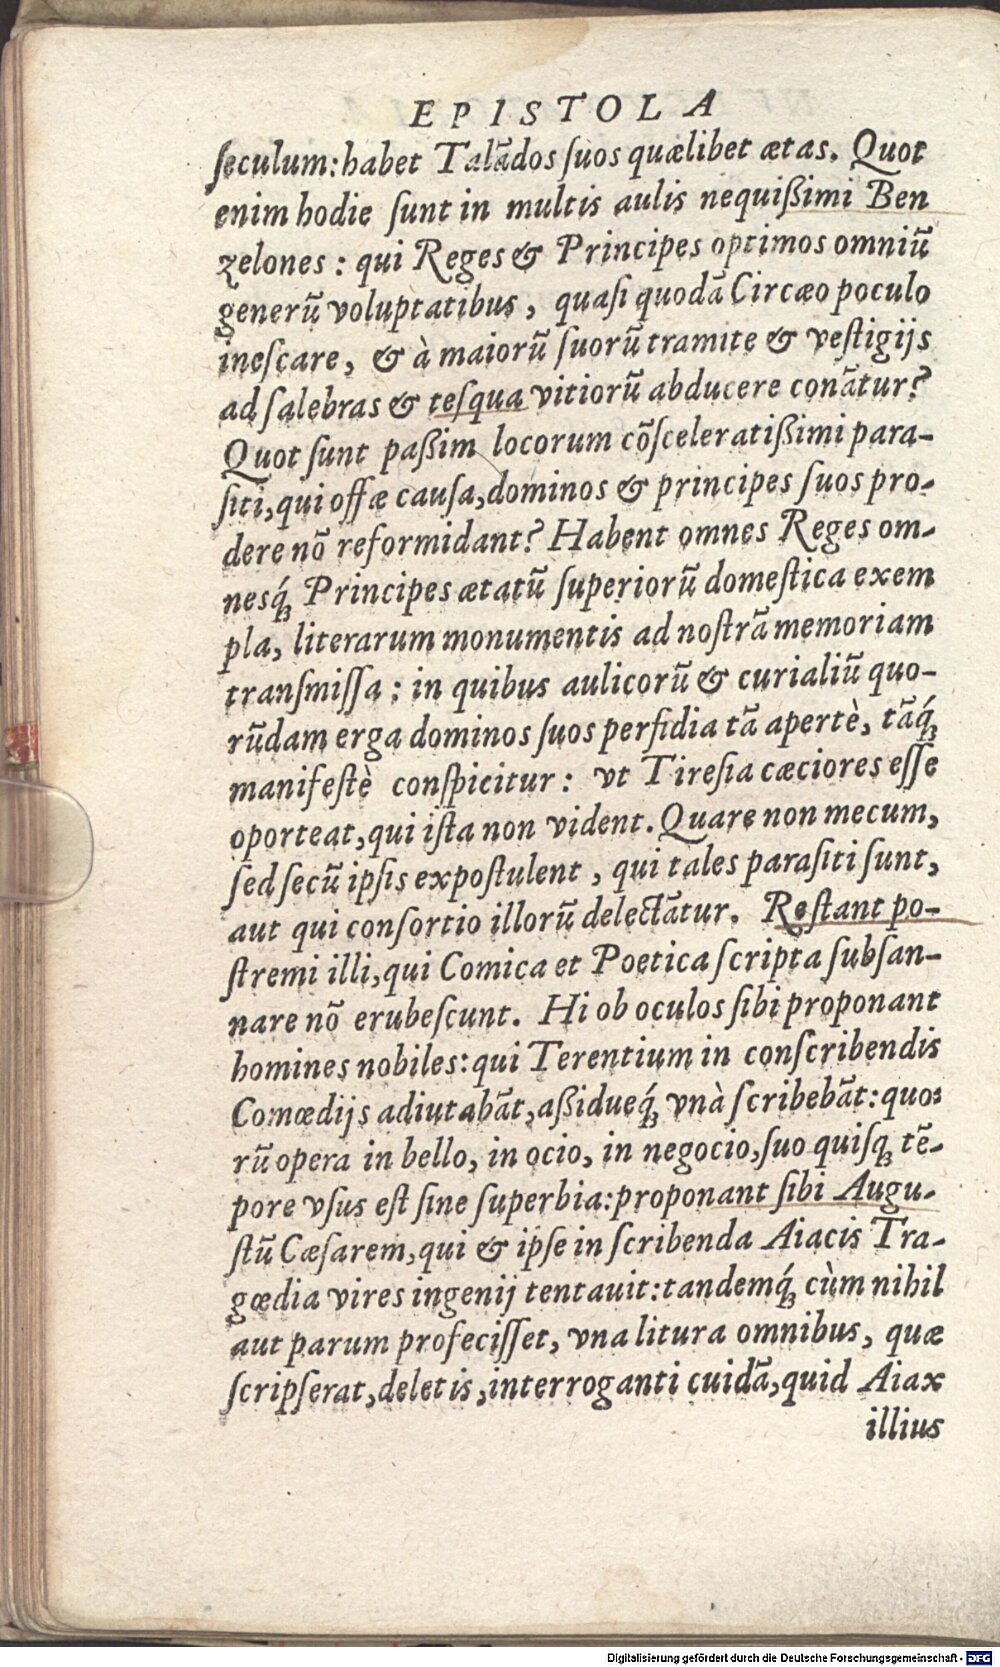 EPISTOLA
ſeculum: habet Talãdos ſuos quælibet ætas. Quot
enim hodie ſunt in multis aulis nequißimi Ben
zelones: qui Reges & Principes optimos omniũ
generũ voluptatibus, quaſi quodã Circæo poculo
ineſcare, & à maiorũ ſuorũ tramite & veſtigijs
ad ſalebras & teſqua vitiorũ abducere conãtur?
Quot ſunt paßim locorum cõſceleratißimi para-
ſiti, qui offæ cauſa, dominos & principes ſuos pro-
dere nõ reformidant? Habent omnes Reges om-
nesq́; Principes ætatũ ſuperiorũ domeſtica exem
pla, literarum monumentis ad noſtrã memoriam
tranſmiſſa: in quibus aulicorũ & curialiũ quo-
rũdam erga dominos ſuos perfidia tã apertè, tãq́;
manifeſtè conſpicitur: vt Tireſia cæciores eſſe
oporteat, qui iſta non vident. Quare non mecum,
ſed ſecũ ipſis expoſtulent, qui tales paraſiti ſunt,
aut qui conſortio illorũ delectãtur. Reſtant po-
ſtremi illi, qui Comica et Poetica ſcripta ſubſan-
nare nõ erubeſcunt. Hi ob oculos ſibi proponant
homines nobiles: qui Terentium in conſcribendis
Comœdijs adiutabãt, aßidueq́; vnà ſcribebãt: quo-
rũ opera in bello, in ocio, in negocio, ſuo quiſq; tẽ-
pore vſus eſt ſine ſuperbia: proponant ſibi Augu-
ſtũ Cæſarem, qui & ipſe in ſcribenda Aiacis Tra-
gœdia vires ingenij tentauit: tandemq́; cùm nihil
aut parum profeciſſet, vna litura omnibus, quæ
ſcripſerat, deletis, interroganti cuidã, quid Aiax
illius
Digitalisierung gefördert durch die Deutsche Forschungsgemeinschaft - DFG